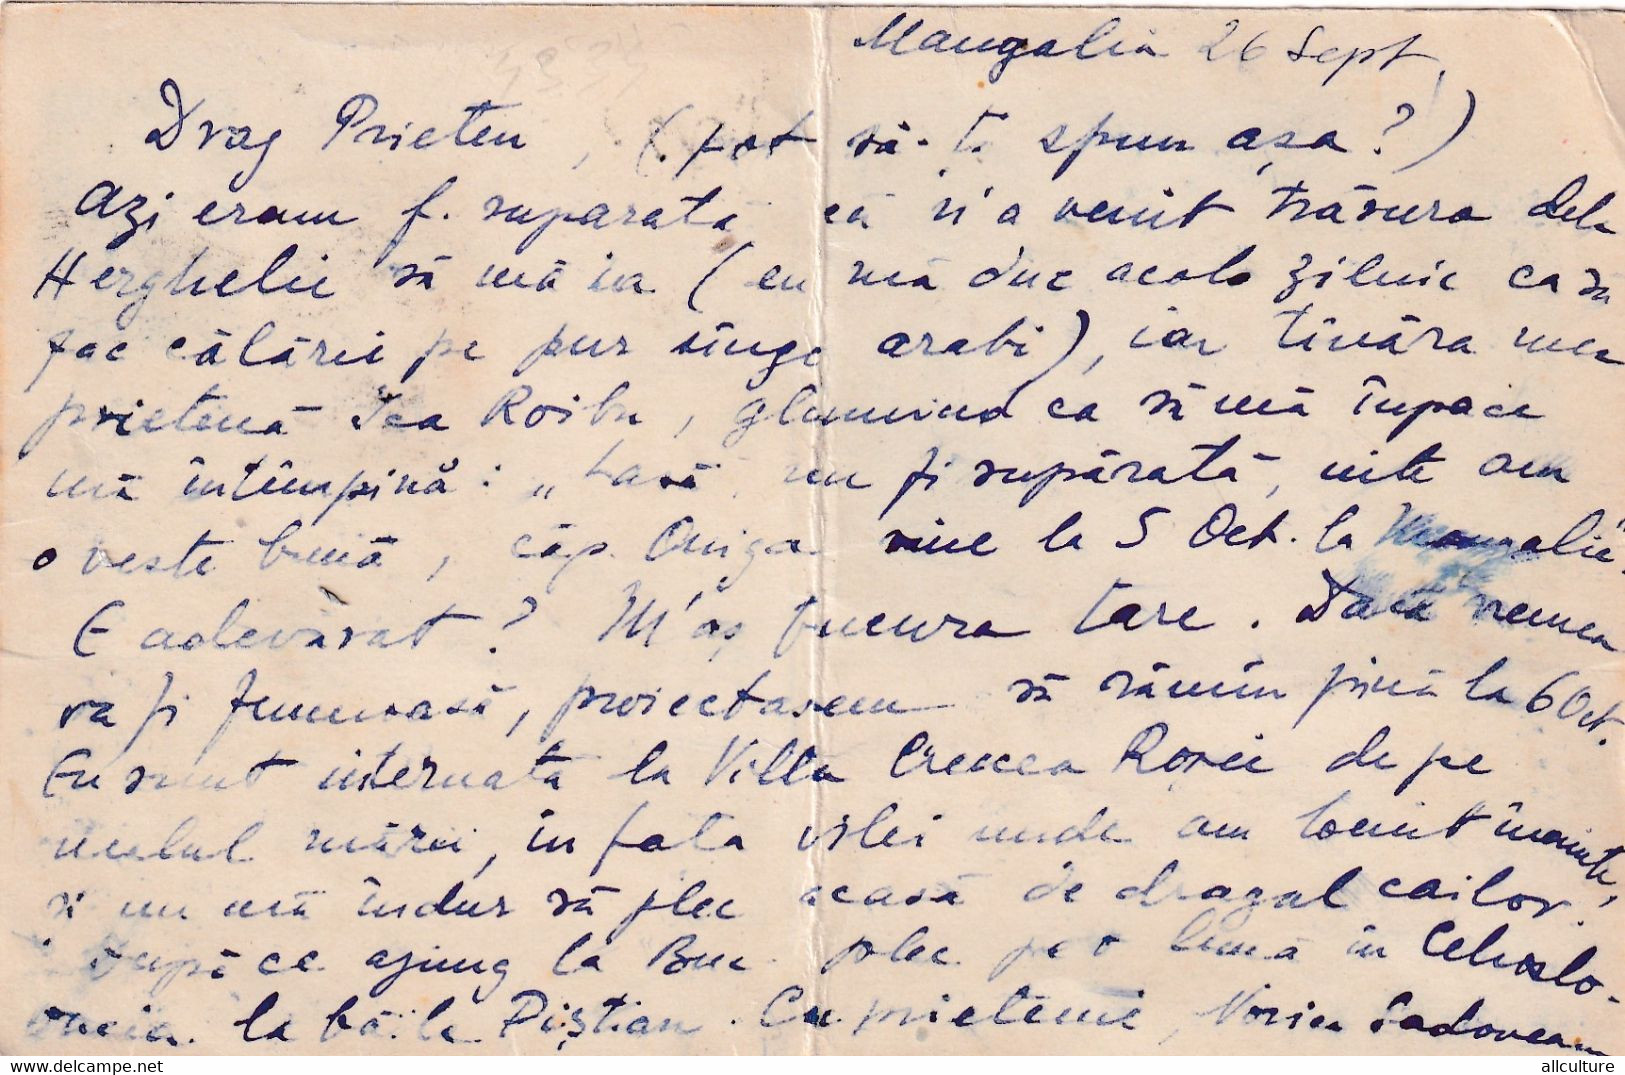 Mangalia 26 Sept,
Drag Prieten, (pot să-ți spun așa?)
Azi eram f. supărată că n'a venit trăsura dela
Herghelie să mă ia (eu mă duc acolo zilnic ca să
fac călărie pe pur sînge arabi), iar tînăra mea
prietenă Ica Roibu, glumind ca să mă înpace
mă întîmpină: „Lasă nu fi supărată, uite am
o veste bună, căp. vine la 5 Oct. la Mangalia".
E adevărat? M'aș bucura tare. Dacă vremea
va fi frumoasă, proiectasem să rămîn pînă la 6 Oct.
Eu sunt internată la Villa Crucea Roșie de pe
malul mării, în fața vilei unde am locuit înainte,
și nu mă îndur să plec acasă de dragul cailor.
După ce ajung la Buc. plec pe o lună în Cehoslo-
vacia la băile Piștian. Cu prietenie, Sadoveanu
allculture